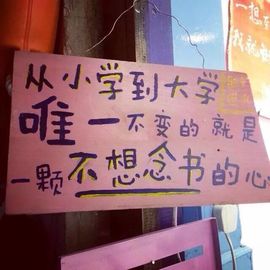 从小学到大学
唯一不变的就是
一颗不想念书的心
一想
我就